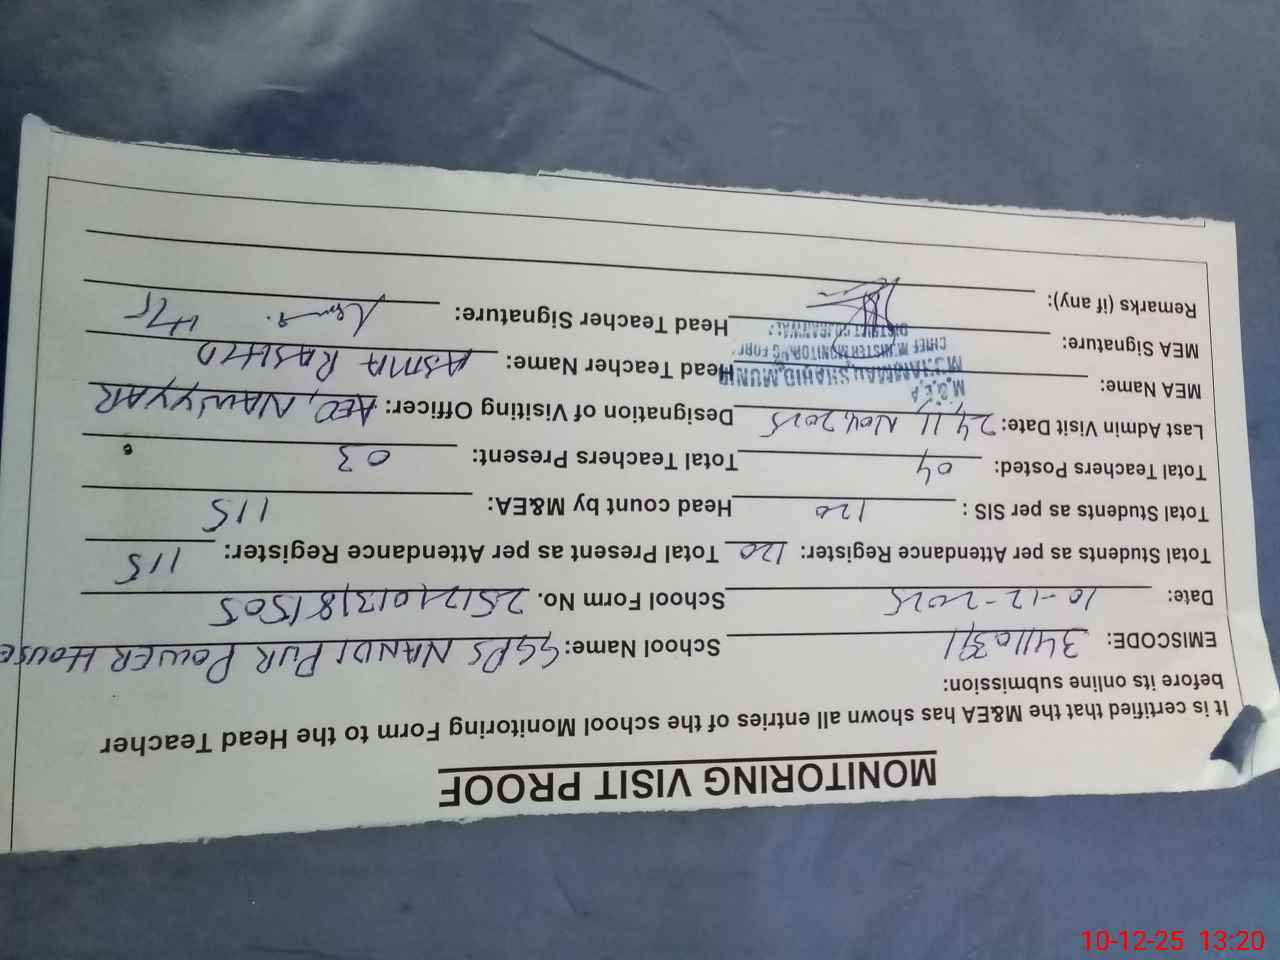 MONITORING VISIT PROOF
It is certified that the M&EA has shown all entries of the school Monitoring Form to the Head Teacher
before its online submission:
EMISCODE: 34110391 School Name: GGPS NANDI PUR POWER HOUSE
Date: 10-12-2025 School Form No. 25121013181505
Total Students as per Attendance Register: 120 Total Present as per Attendance Register: 115
Total Students as per SIS : 120 Head count by M&EA: 115
Total Teachers Posted: 04 Total Teachers Present: 03
Last Admin Visit Date: 24 11 Nov, 2025 Designation of Visiting Officer: AEO, NAWIYYAR
MEA Name: Head Teacher Name: ASMA RASHID
M.& E.A
MUHAMMAD SHAHID MUNIR
CHIEF MINISTER MONITORING FORCE
DISTRICT GUJRANWALA
MEA Signature: Head Teacher Signature: HT
Remarks (if any):
10-12-25 13:20